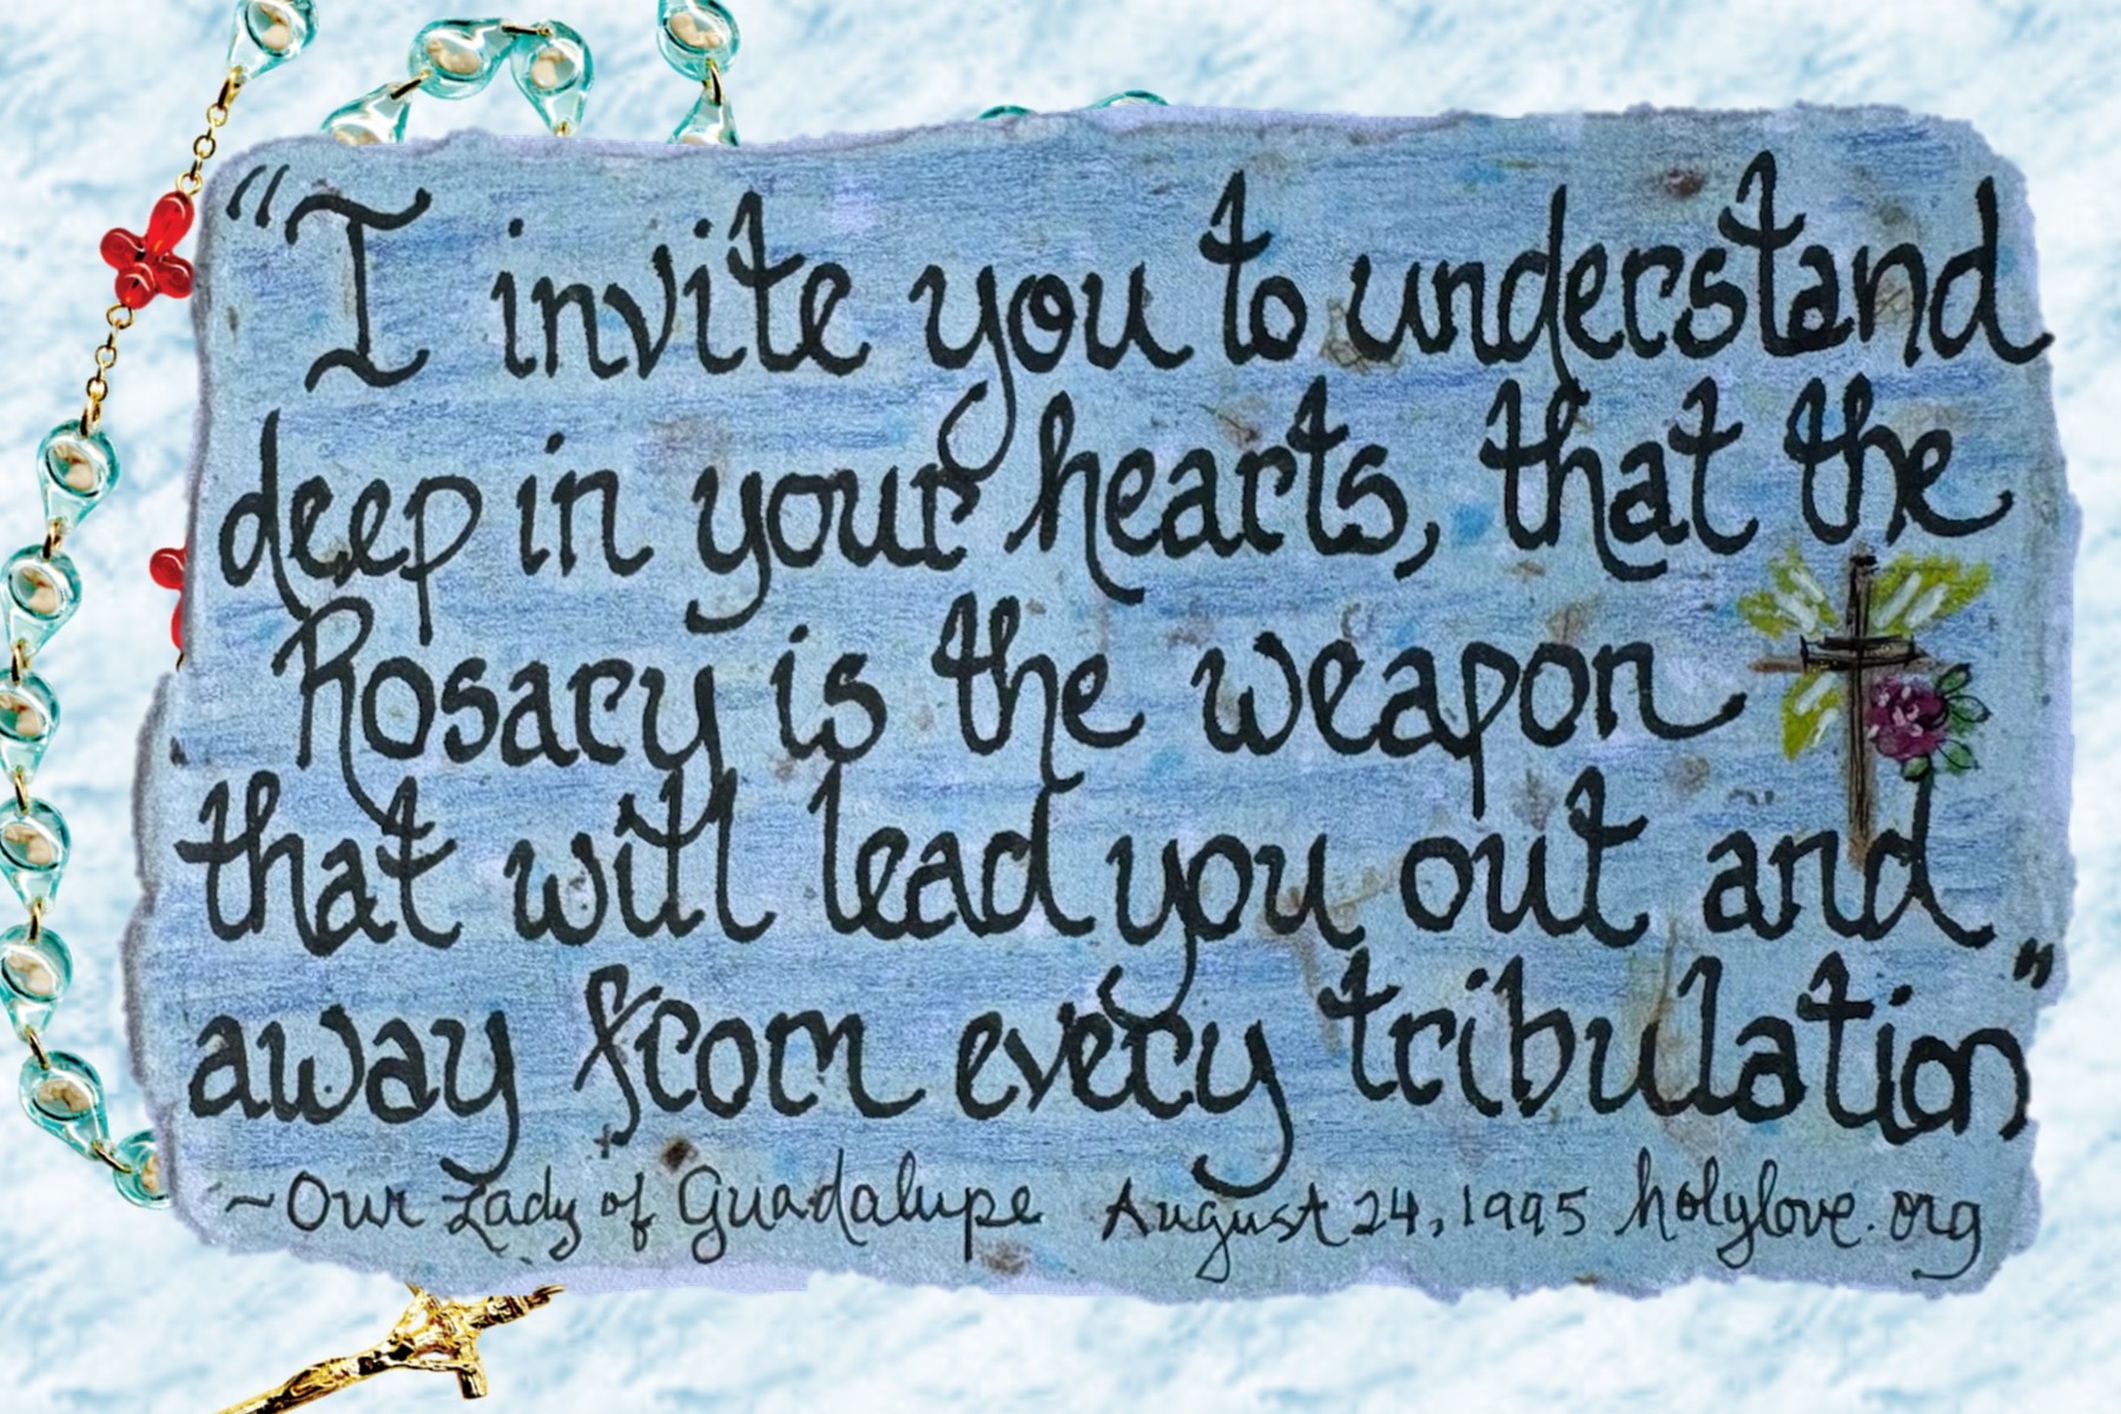 "I invite you to understand
deep in your hearts, that the
Rosary is the weapon
that will lead you out and
away from every tribulation"
~Our Lady of Guadalupe August 24, 1995 holylove.org